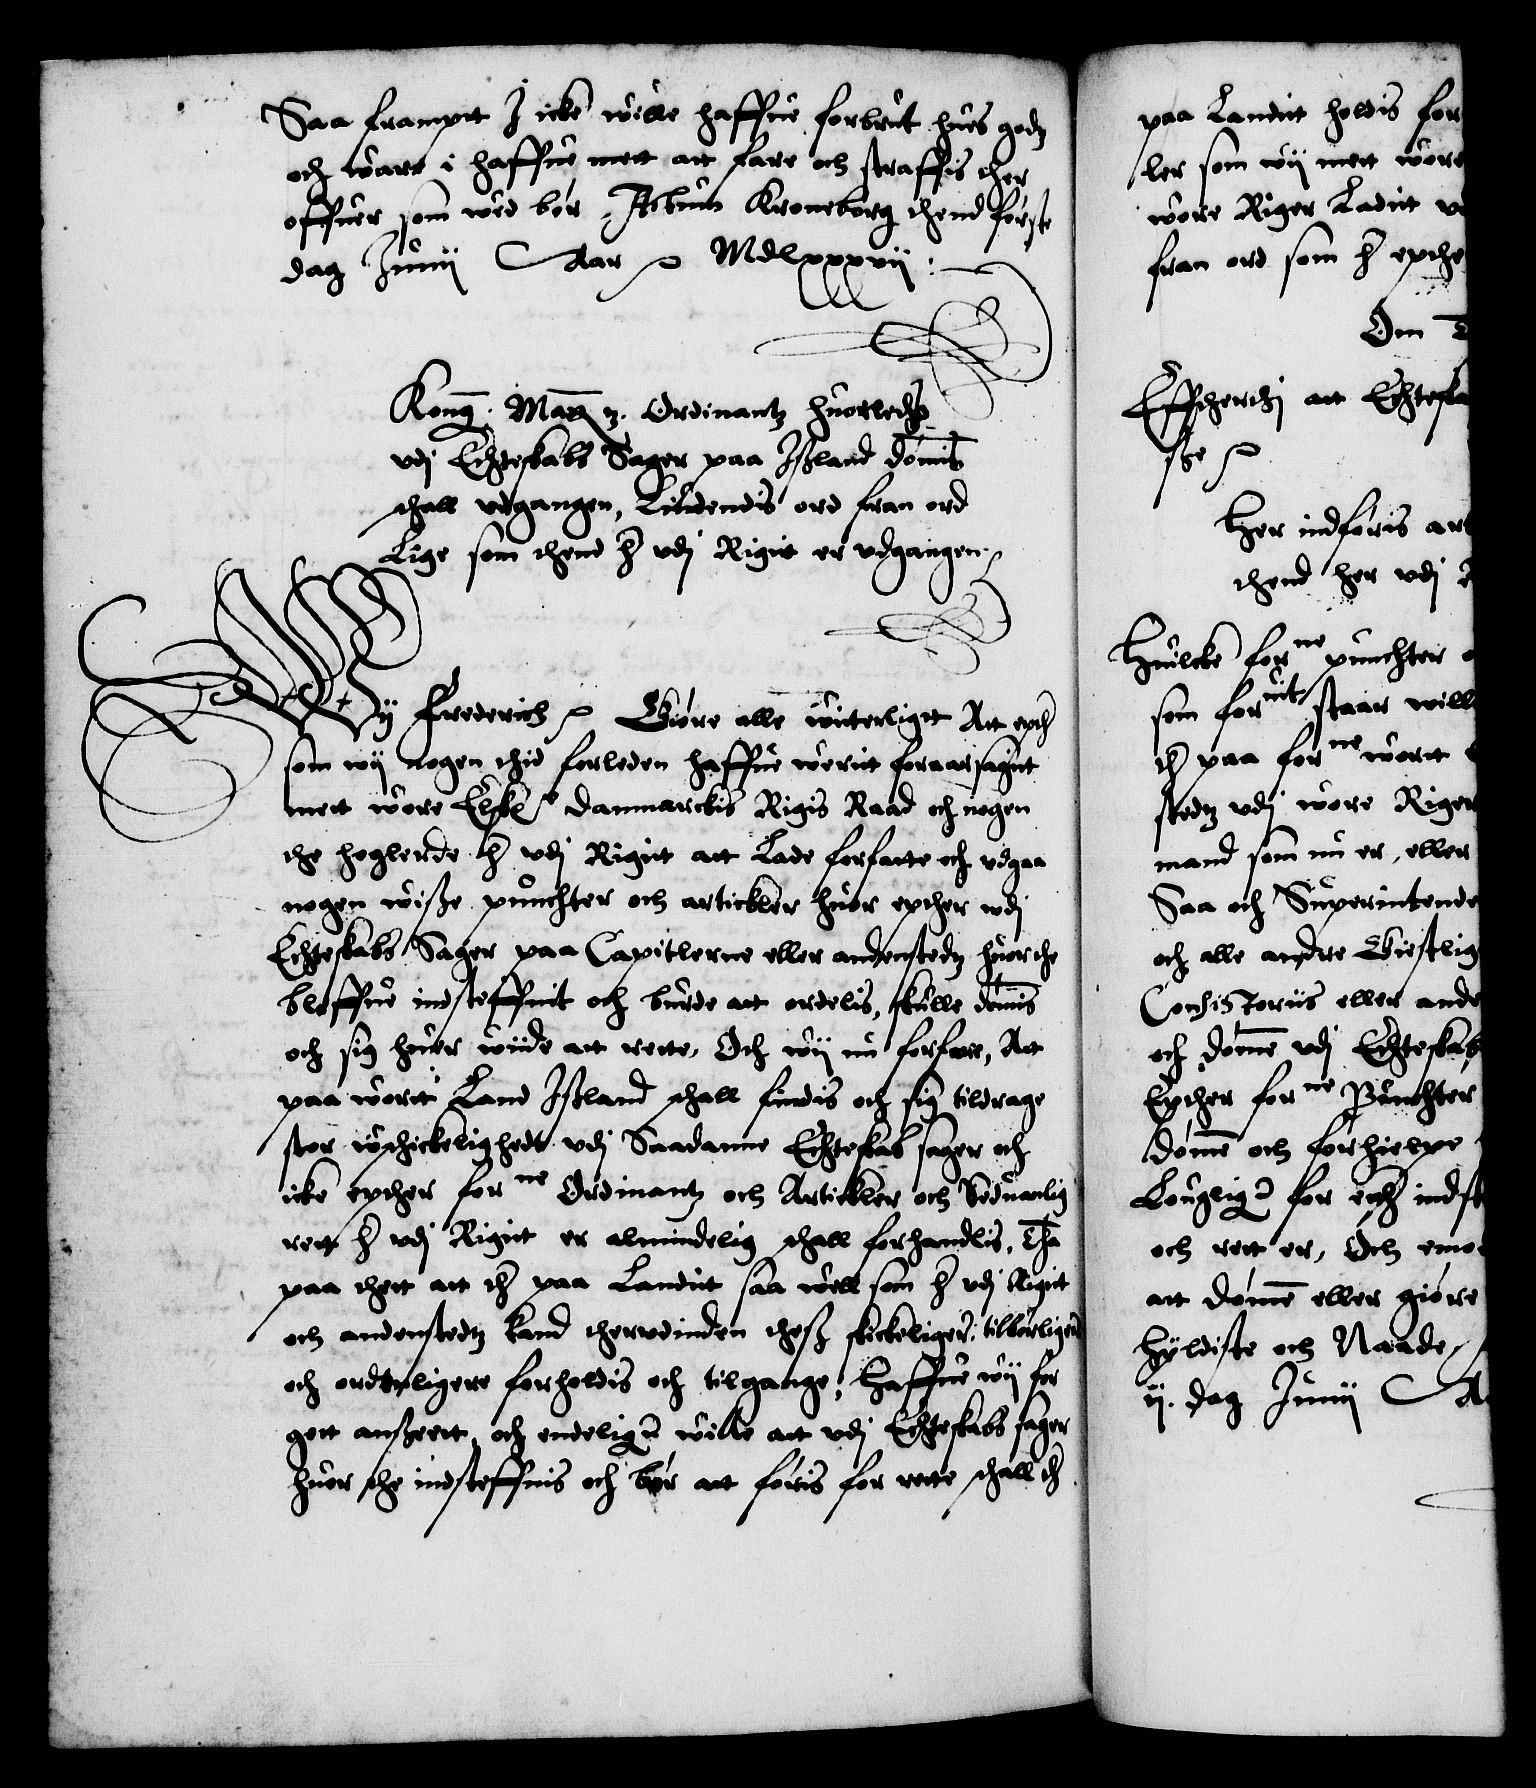 Saa frampt I icke wille haffue forbrut hues godz
och ware i haffue mett att fare och straffis ther
offuer som wed bör, Actum Kroneborg thend förste
dag Junij Aar &c Mdlxxxvij:
Kong: Matz &c. Ordinantz huorledis
udj Echteskabs Sager paa Ißland dömis
schall udgangen, Liudendis ord fran ord
Lige som thend her udj Rigit er udgangen.
Wij Frederich &c Giöre alle witterligt Att epther
som wij nogen thid forleden haffue werit foraarsagit
mett wore Elskl: Danmarckis Rigis Raad och nogen
the höglerde her udj Rigit att Lade forfatte och udgaa
nogen wiße punchter och artickler huor epther udj
Echteskabs Sager paa Capitlerne eller andenstedz huor the
bleffue indsteffnit och burde att ordelis, skulle dömis
och sig huer wiide att rette, Och wij nu forfare, Att
paa wort Land Ißland schall findis och sig tildrage
stor uschickelighedt udj Saadanne Echteskab sager och
icke epther forne Ordinantz och Artickler och Seduanlig
rett her udj Rigit er almindelig schall forhandlis, Tha
paa thett att ther paa Landit saa well som her udj Rigit
och andenstedtz kand therudinden theß skickeliger, tilbörliger
och ordtnligere forholdis och tilgange, Haffue wij for
gott anßeett, och endeligen wille att udj Echteskabs sager
huor the indsteffnis och bör att föris for rette schall ther
paa Landit holdis for
ler som wij mett wore
wore Riger Ladit u
fran ord som her epthe
Om
Effstherthj att Echteska
ske &c
Her indföris art
thend her udj
Huilcke forne punchter
som foruit staar will
ther paa forne wort
stedz udj wore Riger
mand som nu er, eller
Saa och Superintende
och alle andre Giestlig
Consistoriis eller ande
och dömme udj Echteskab
Epther forne Punchter
dömme och forhielpe
Louglig for ether indst
och rett er, Och emo
att dömme eller giöre
Hyldiste och Naade,
ij. dag Junij A